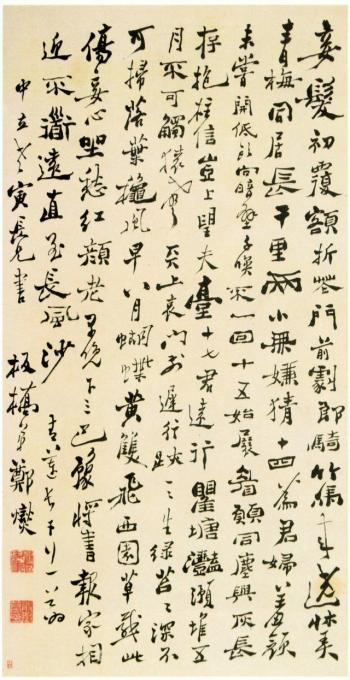 妾髮初覆額折花門前劇郎騎竹馬來遶牀弄
青梅同居長干里兩小無嫌猜十四為君婦羞顏
未嘗開低頭向暗壁千喚不一回十五始展眉願同塵與灰長
存抱柱信豈上望夫臺十七君遠行瞿塘灩澦堆五
月不可觸猿聲天上哀門前遲行跡一一生綠苔苔深不
可掃落葉秋風早八月蝴蝶黃雙飛西園草感此
傷妾心坐愁紅顏老早晚下三巴預將書報家相
迎不道遠直至長風沙 青蓮長干行一首為
中立老寅長兄書 板橋弟鄭燮